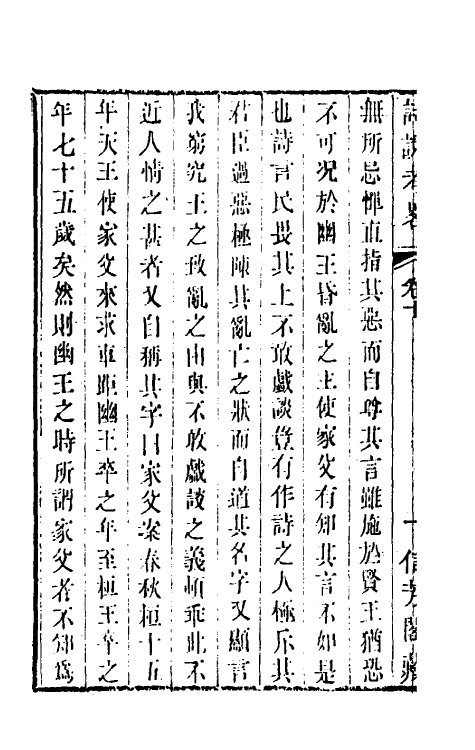 詩説考畧 卷十 一 信芳閣藏
無所忌憚直指其惡而自尊其言雖施於賢王猶恐
不可况於幽王昏亂之主使家父有知其言不如是
也詩言民畏其上不敢戲談豈有作詩之人極斥其
君臣過惡極陳其亂亡之狀而自道其名字又顯言
我窮究王之致亂之由與不敢戲談之義頓乖此不
近人情之甚者又自稱其字曰家父案春秋桓十五
年天王使家父來求車距幽王卒之年至桓王卒之
年七十五歲矣然則幽王之時所謂家父者不知爲